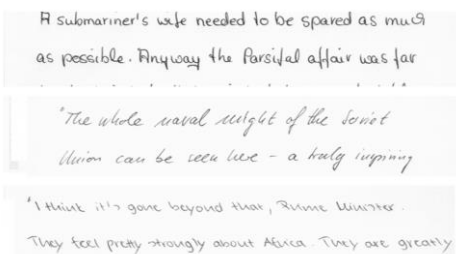 A submariner's wife needed to be spared as much
as possible. Anyway the Parsifal affair was far
"The whole naval might of the Soviet
Union can be seen here - a truly inspiring
"I think it's gone beyond that, Prime Minister.
They feel pretty strongly about Africa. They are greatly